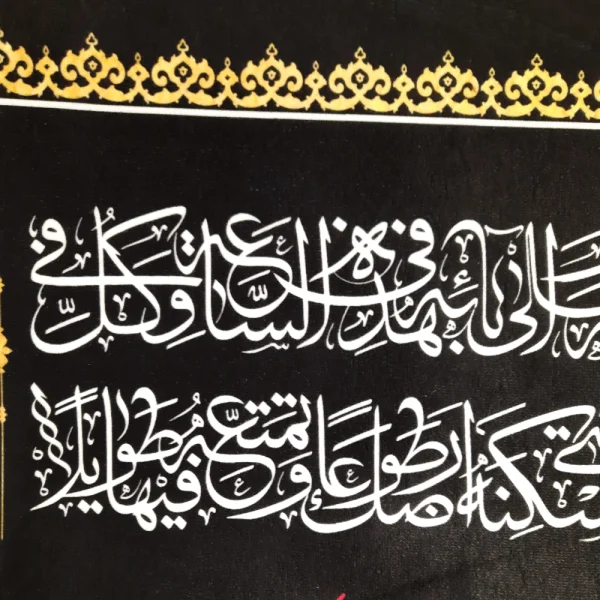 آبائه في هذه الساعة و في كل
تسكنه أرضك طوعاً و تمتعه فيها طويلاً